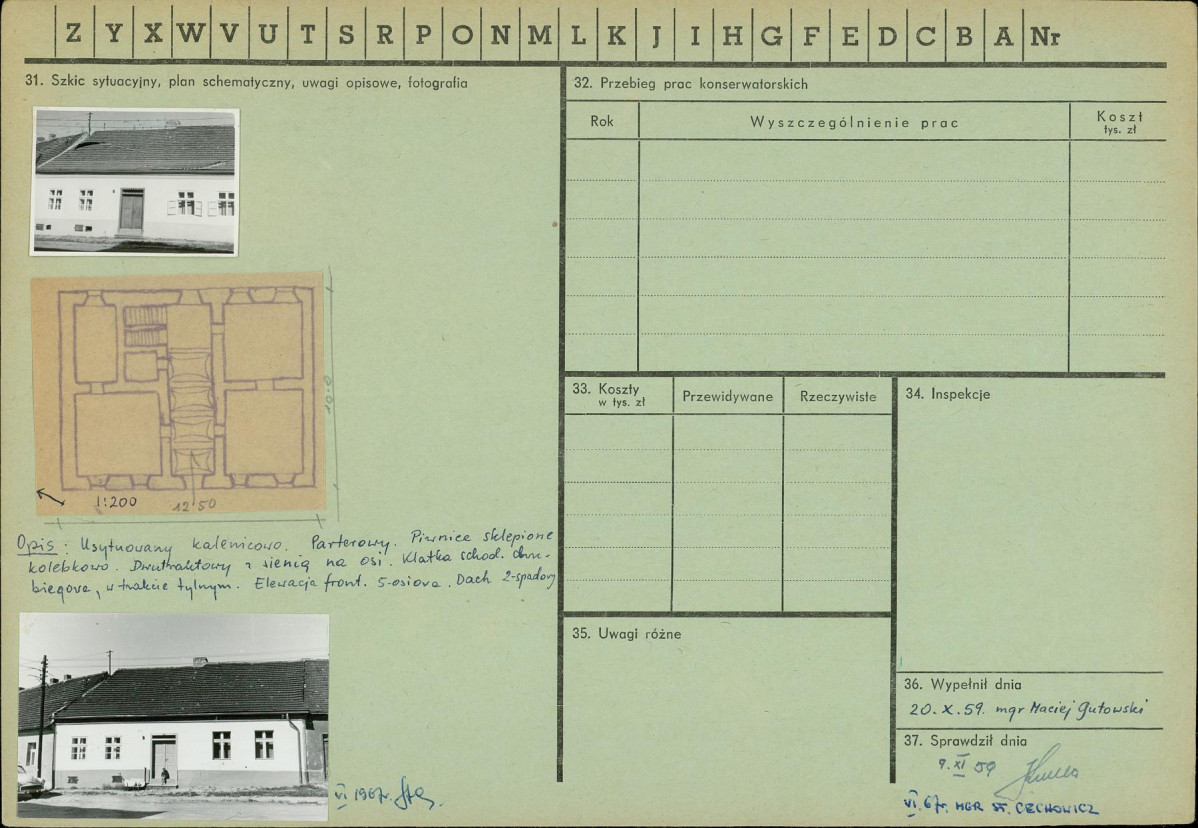 Z Y X W V U T S R P O N M L K J I H G F E D C B A Nr
31. Szkic sytuacyjny, plan schematyczny, uwagi opisowe, fotografia
10.0
1:200
12.50
Opis: Usytuowany kalenicowo. Parterowy. Piwnice sklepione
kolebkowo. Dwutraktowy z sienią na osi. Klatka schod. dwu-
biegowa, w trakcie tylnym. Elewacja front. 5-osiowa. Dach 2-spadowy
VI 1967r.
32. Przebieg prac konserwatorskich
Rok
Wyszczególnienie prac
Koszt
tys. zł
33. Koszty
w tys. zł
Przewidywane
Rzeczywiste
34. Inspekcje
35. Uwagi różne
36. Wypełnił dnia
20. X. 59. mgr Maciej Gutowski
37. Sprawdził dnia
9. XI 59
VI. 67r. MGR ST. CECHOWICZ